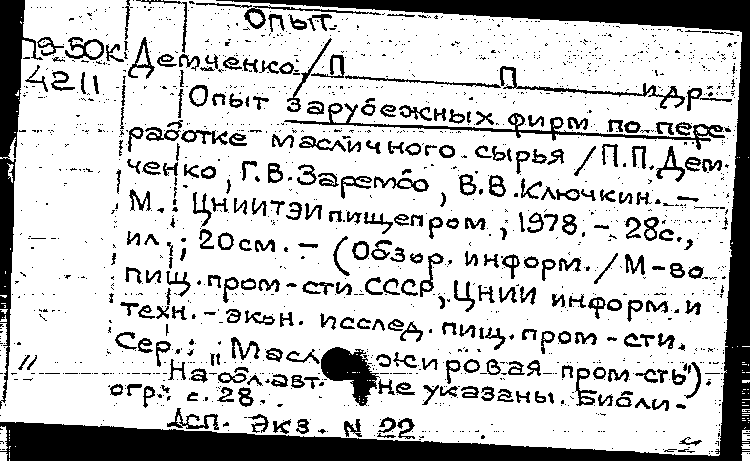 Опыт
79-50к Демченко, П П и др.
4211
Опыт зарубежных фирм по пере-
работке масличного сырья / П.П. Дем-
ченко, Г.В. Зарембо, В.В. Ключкин. —
М.: ЦНИИТЭИпищепром, 1978. – 28с.,
ил.; 20см. — (Обзор. информ. / М-во
пищ. пром-сти СССР, ЦНИИ информ. и
техн.-экон. исслед. пищ. пром-сти.
Сер.: "Масл жировая пром-сть").
На обл. авт. не указаны. Библи-
огр.: с. 28.
Дсп. Экз. N 22